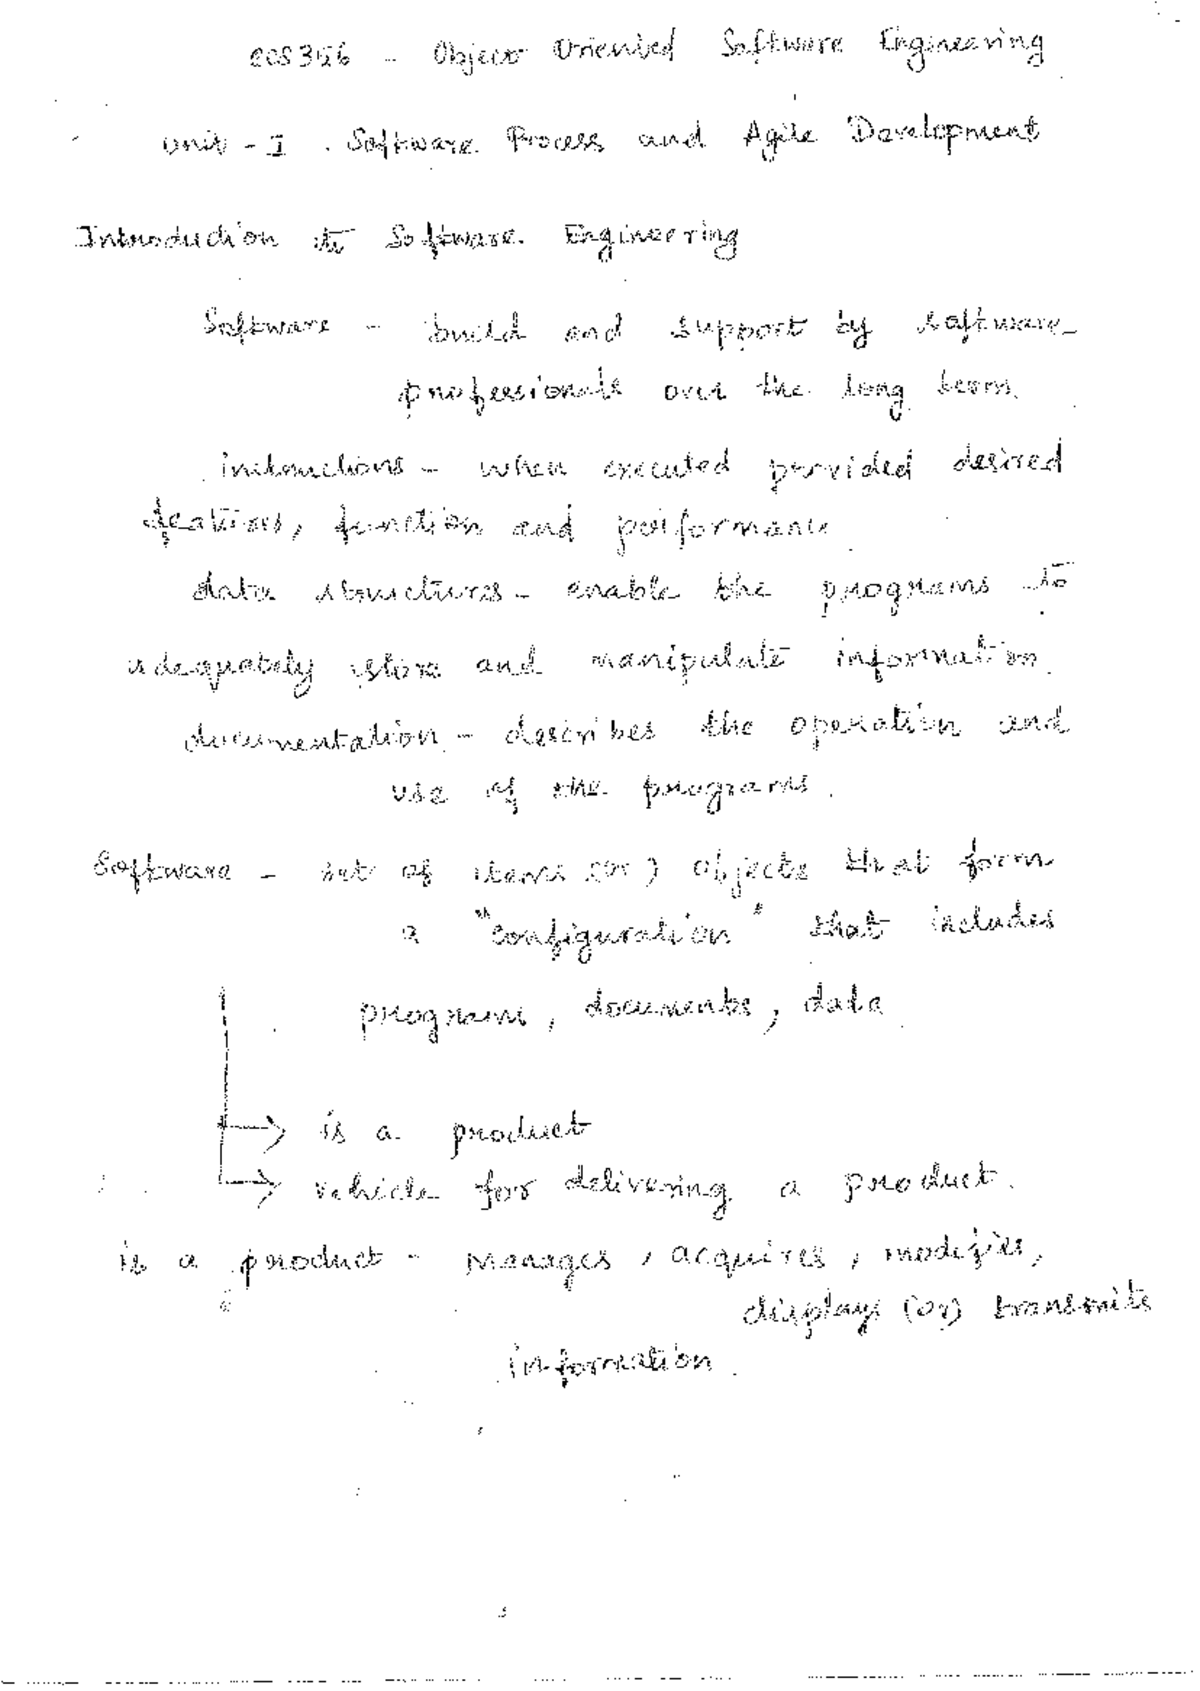 CCS356 - Object Oriented Software Engineering
Unit - I . Software Process and Agile Development
Introduction to Software Engineering
Software - build and support by software
professionals over the long term.
instructions - when executed provided desired
features, function and performance
data structures - enable the programs to
adequately store and manipulate information.
documentation - describes the operation and
use of the programs.
Software - set of items (or) objects that form
a "configuration" that includes
programs, documents, data
→ is a product
→ vehicle for delivering a product.
is a product - manages, acquires, modifies,
displays (or) transmits
information.